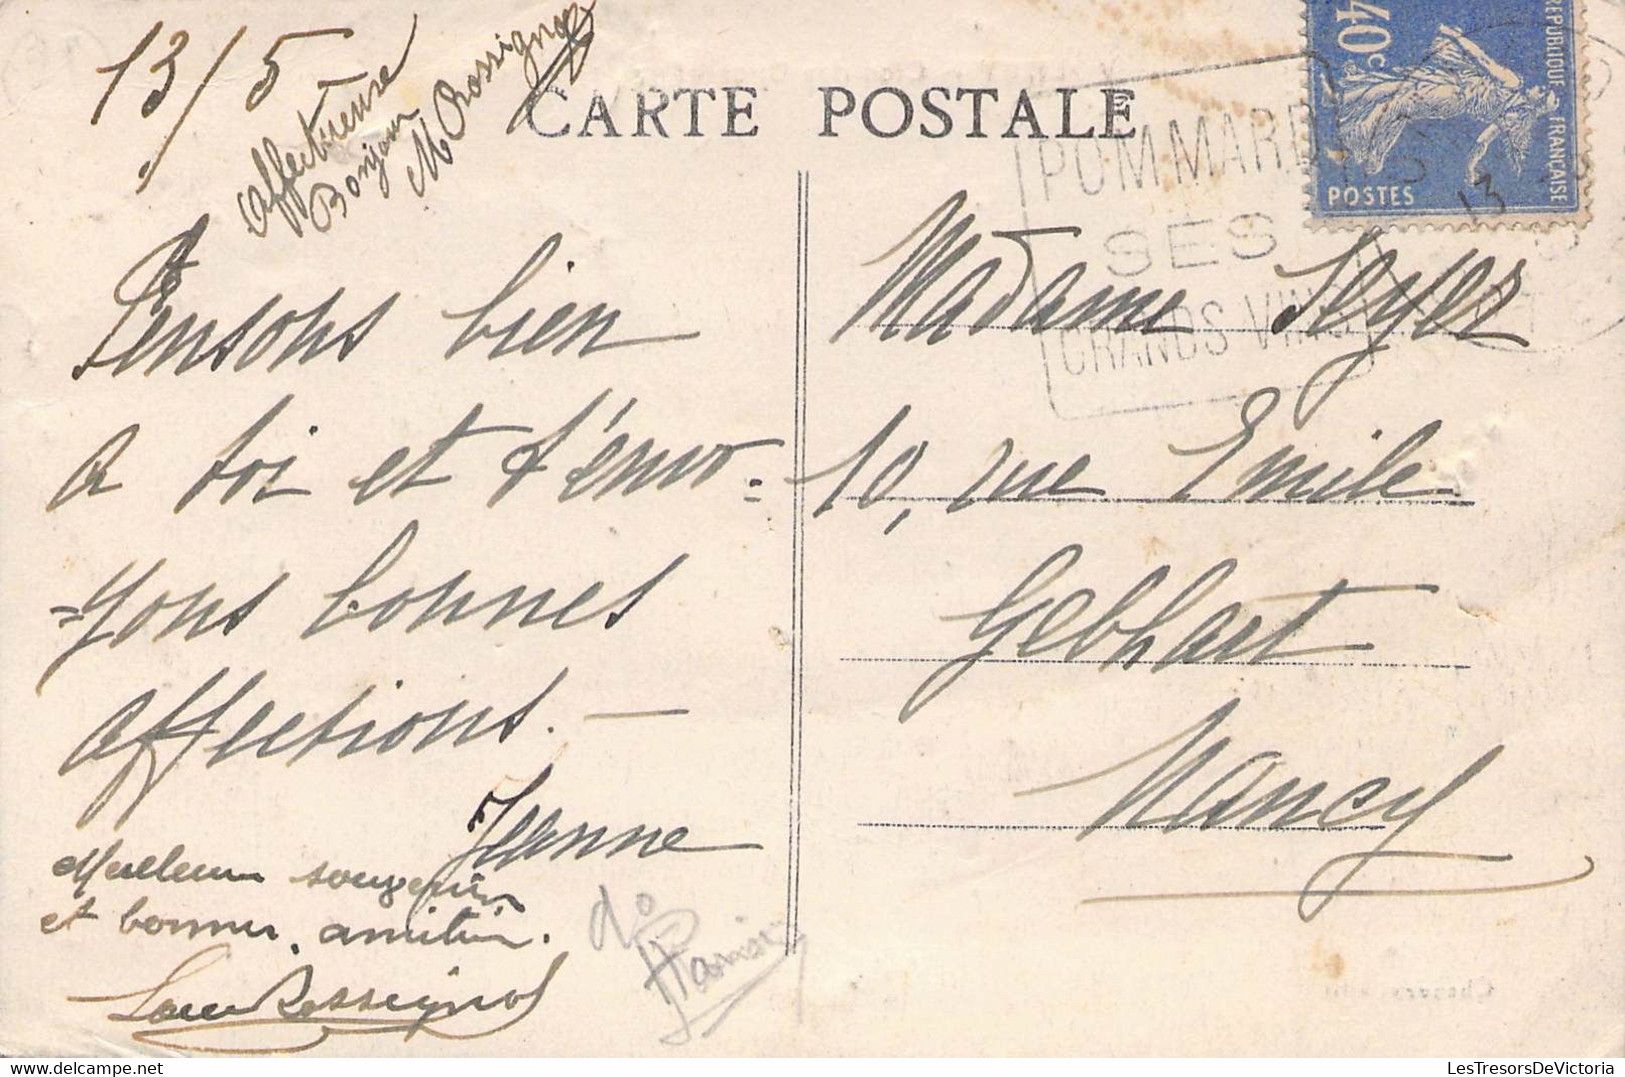 13/5 -
Affectueuse
Bonjour
M Rossignol
CARTE POSTALE
40c
REPUBLIQUE FRANÇAISE
POSTES
13
POMMARD
SES
GRANDS VINS
Pensons bien
a toi et t'envo=
=yons bonnes
affections. —
Jeanne
Meilleurs souvenirs
et bonnes amitiés.
Rossignol
do
Madame Seyer
10, rue Emile
Gebhart
Nancy
LesTresorsDeVictoria.com
LesTresorsDeVictoria